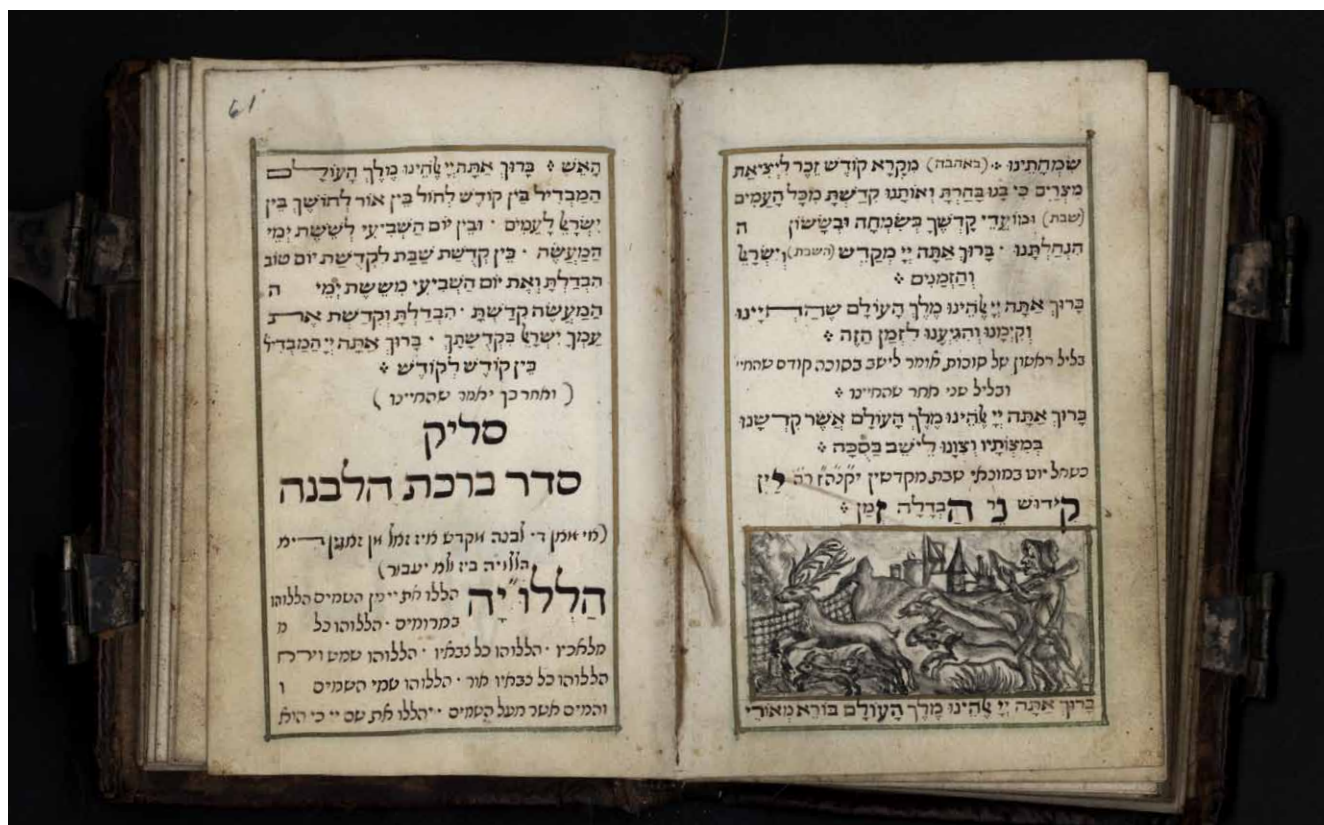 שִׂמְחָתֵינוּ · (באהבה) מִקְרָא קוֹדֶשׁ זֵכֶר לִיצִיאַת
מִצְרַיִם כִּי בָנוּ בָחַרְתָּ וְאוֹתָנוּ קִדַּשְׁתָּ מִכָּל הָעַמִּים
(שבת) וּמוֹעֲדֵי קָדְשֶׁךָ בְּשִׂמְחָה וּבְשָׂשׂוֹן ה
הִנְחַלְתָּנוּ · בָּרוּךְ אַתָּה יְיָ מְקַדֵּשׁ (השבת) וְיִשְׂרָאֵל
וְהַזְּמַנִּים
בָּרוּךְ אַתָּה יְיָ אֱלֹהֵינוּ מֶלֶךְ הָעוֹלָם שֶׁהֶחֱיָינוּ
וְקִיְּמָנוּ וְהִגִּיעָנוּ לַזְּמַן הַזֶּה
בליל ראשון של סוכות, אומר לישב בסוכה קודם שהחיי'
ובליל שני אחר שהחיינו
בָּרוּךְ אַתָּה יְיָ אֱלֹהֵינוּ מֶלֶךְ הָעוֹלָם אֲשֶׁר קִדְּשָׁנוּ
בְּמִצְוֹתָיו וְצִוָּנוּ לֵישֵׁב בַּסֻּכָּה
כשחל יוט במוצאי שבת מקדשין יקנה"ז ר"ת יַיִן
קִידוּשׁ נֵר הַבְדָּלָה זְמַן
בָּרוּךְ אַתָּה יְיָ אֱלֹהֵינוּ מֶלֶךְ הָעוֹלָם בּוֹרֵא מְאוֹרֵי
61
הָאֵשׁ · בָּרוּךְ אַתָּה יְיָ אֱלֹהֵינוּ מֶלֶךְ הָעוֹלָם
הַמַּבְדִּיל בֵּין קוֹדֶשׁ לְחוֹל בֵּין אוֹר לְחוֹשֶׁךְ בֵּין
יִשְׂרָאֵל לָעַמִּים · וּבֵין יוֹם הַשְּׁבִיעִי לְשֵׁשֶׁת יְמֵי
הַמַּעֲשֶׂה · בֵּין קְדֻשַּׁת שַׁבָּת לִקְדֻשַּׁת יוֹם טוֹב
הִבְדַּלְתָּ וְאֶת יוֹם הַשְּׁבִיעִי מִשֵּׁשֶׁת יְמֵי ה
הַמַּעֲשֶׂה קִדַּשְׁתָּ · הִבְדַּלְתָּ וְקִדַּשְׁתָּ אֶת
עַמְּךָ יִשְׂרָאֵל בִּקְדֻשָּׁתֶךָ · בָּרוּךְ אַתָּה יְיָ הַמַּבְדִּיל
בֵּין קוֹדֶשׁ לְקוֹדֶשׁ
(ואחר כך יאמר שהחיינו)
סליק
סדר ברכת הלבנה
לבנה
הַלְלוּיָהּ הללו את יי מן השמים הללוהו
במרומים · הללוהו כל מ
מלאכיו · הללוהו כל צבאיו · הללוהו שמש וירח
הללוהו כל כוכבי אור · הללוהו שמי השמים ו
והמים אשר מעל השמים · יהללו את שם יי כי הוא